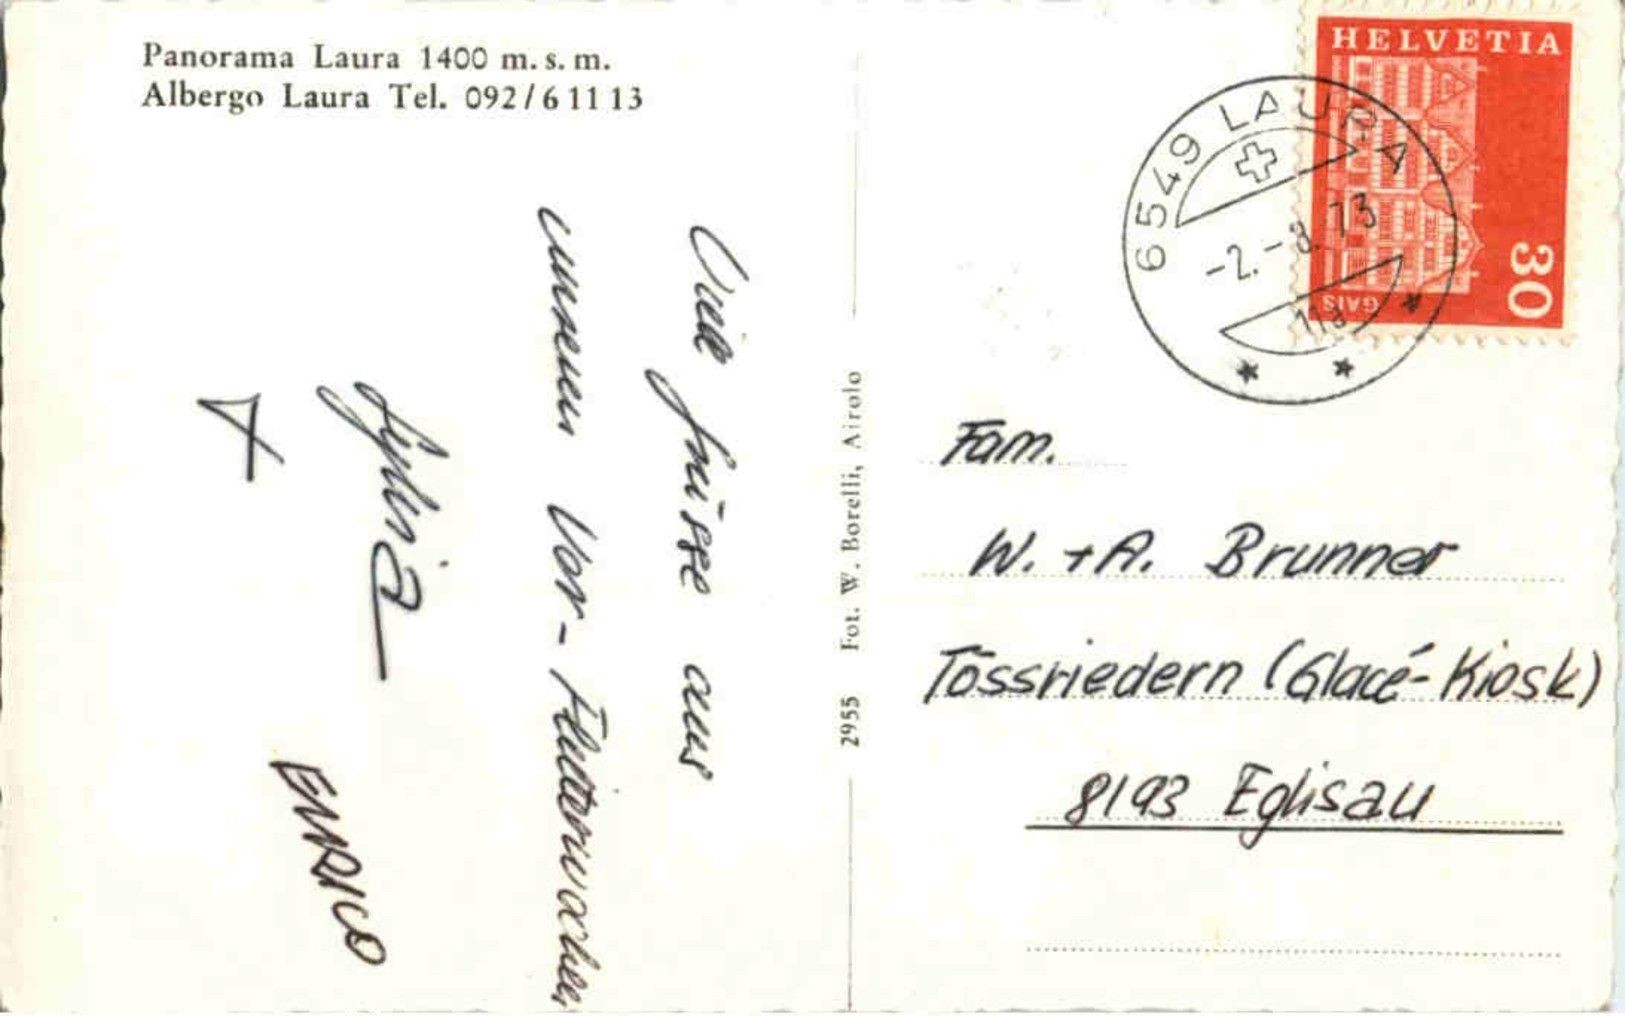 Panorama Laura 1400 m. s. m.
Albergo Laura Tel. 092/6 11 13
Viele Grüsse aus
unseren Vor-Flitterwochen
Sylvia
+
ENRICO
2955 Fot. W. Borelli, Airolo
HELVETIA
30
GAIS
6549 LAURA
-2.-8.73
11a
Fam.
W. + A. Brunner
Tössriedern (Glacé-Kiosk)
8193 Eglisau